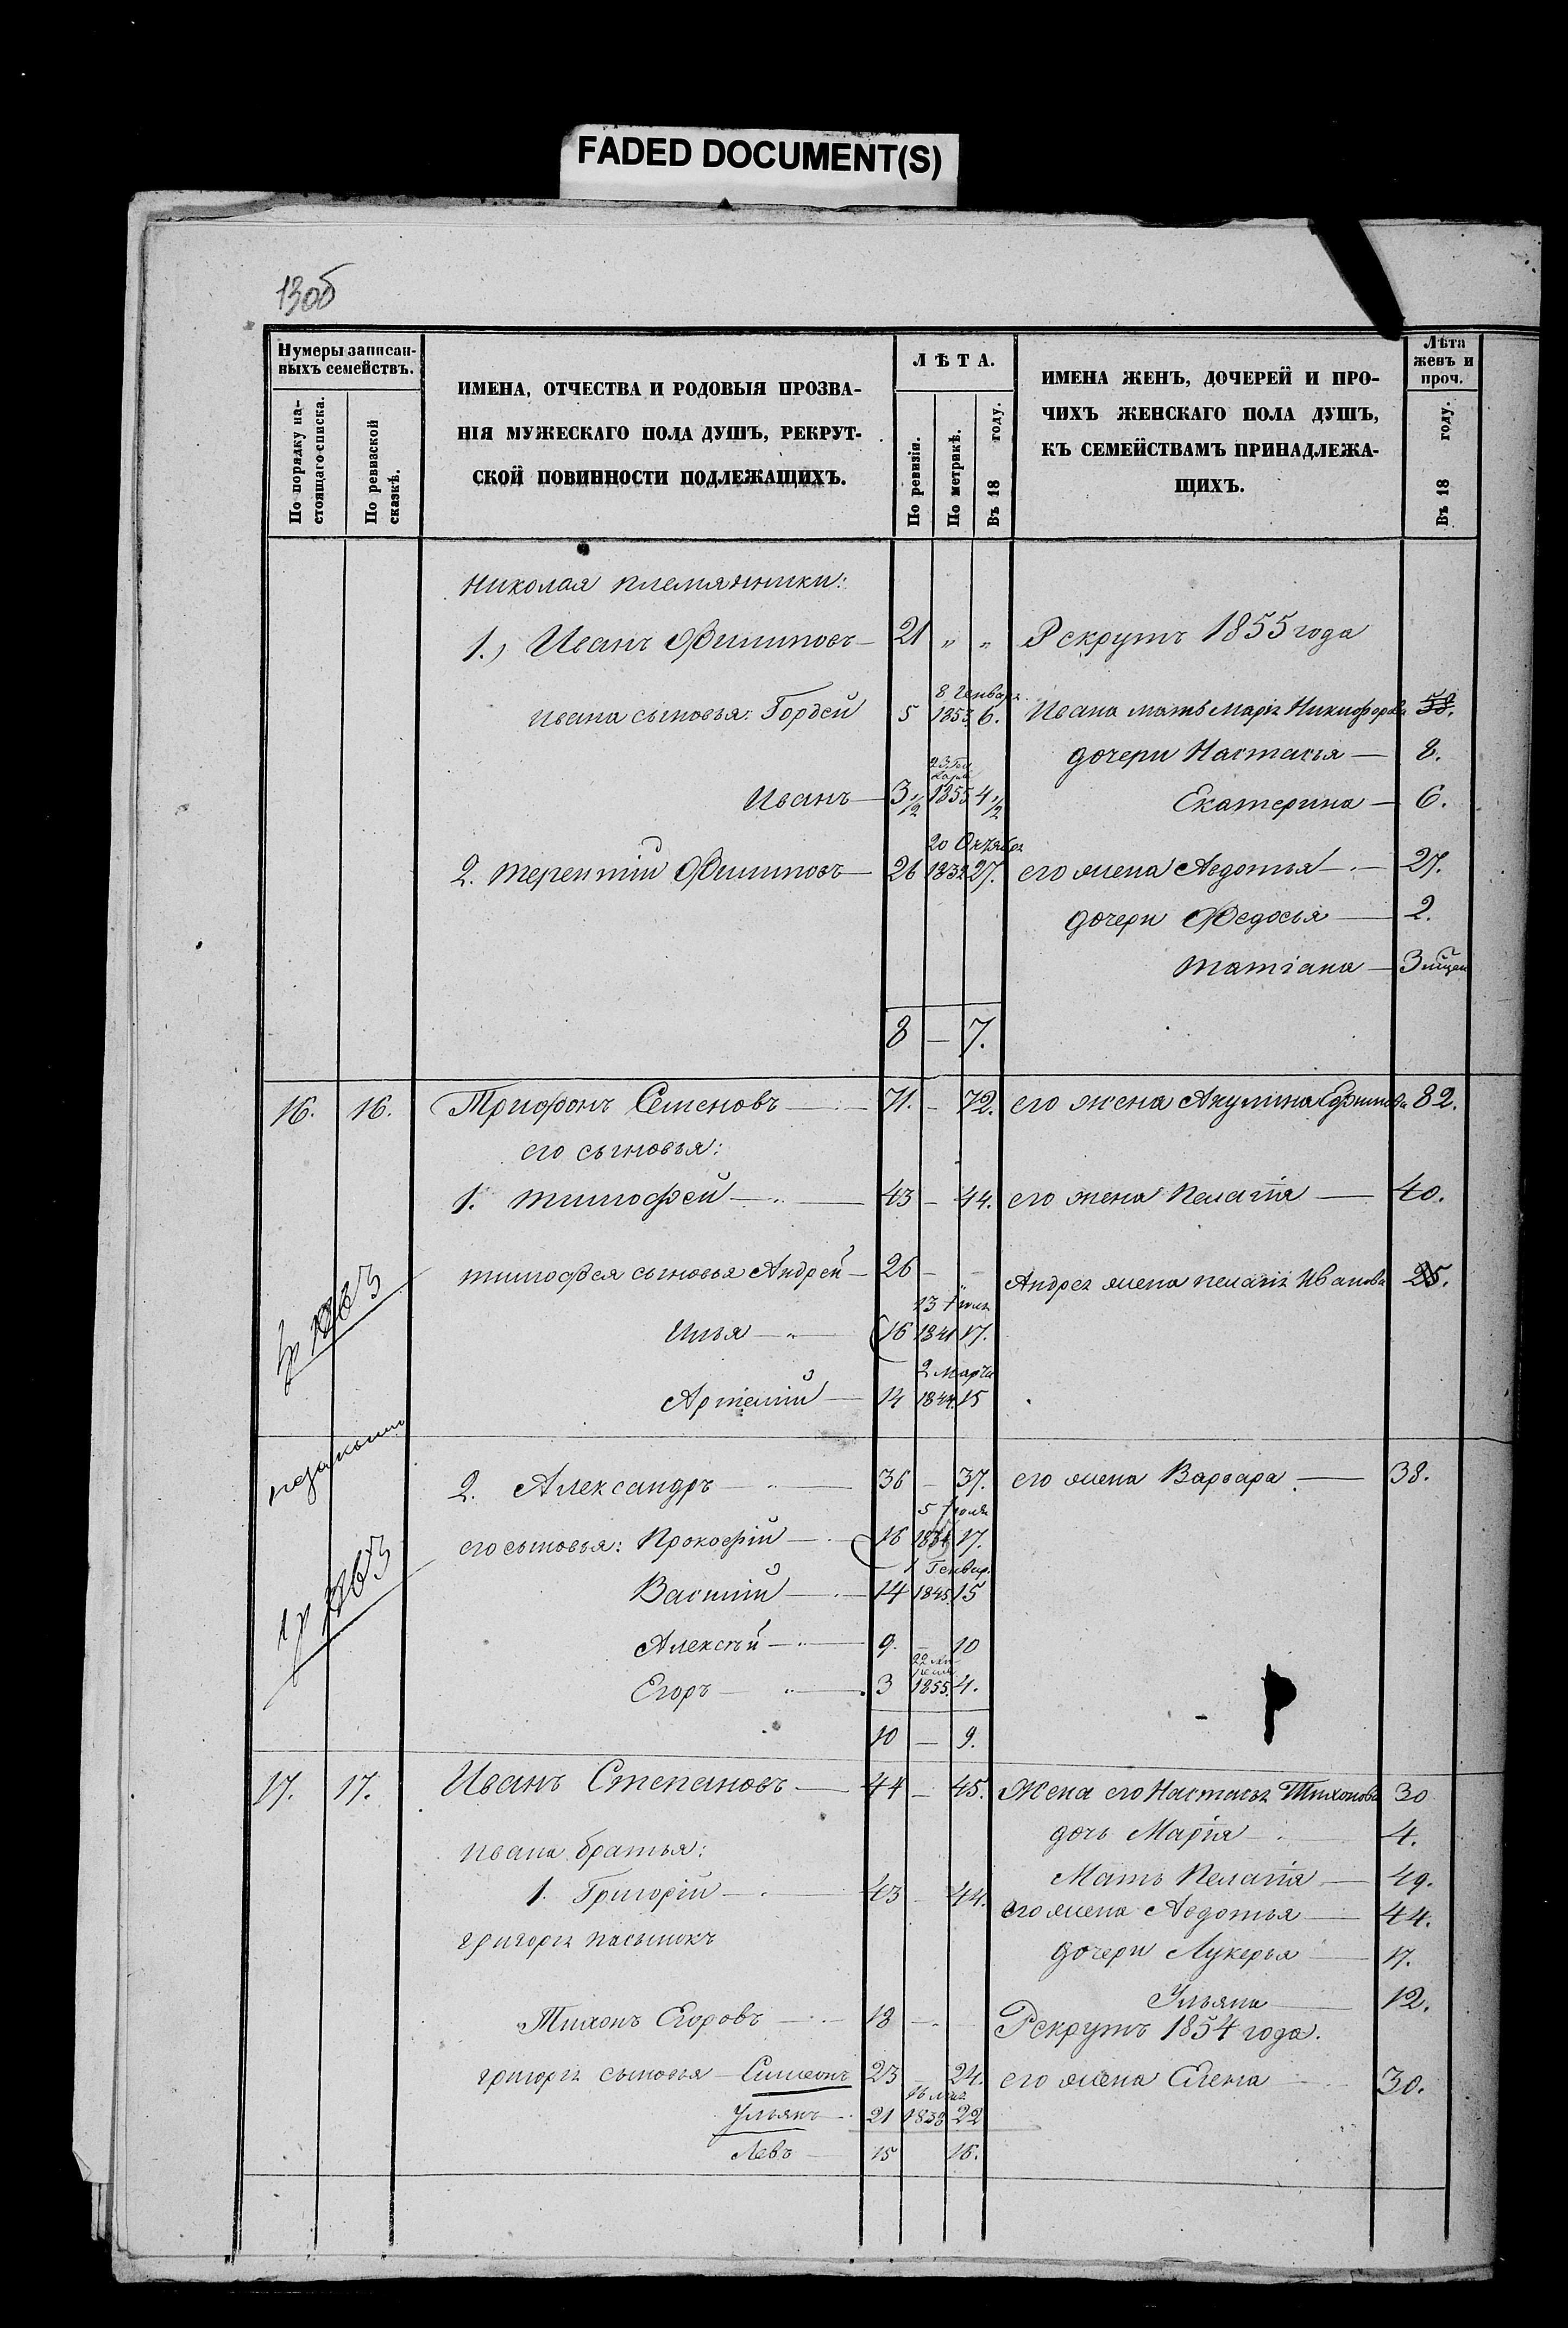 FADED DOCUMENT(S)
13об
Нумеры записан-
ныхъ семействъ.
По порядку на-
стоящаго списка.
По ревизской
сказкѣ.
ИМЕНА, ОТЧЕСТВА И РОДОВЫЯ ПРОЗВА-
НІЯ МУЖЕСКАГО ПОЛА ДУШЪ, РЕКРУТ-
СКОЙ ПОВИННОСТИ ПОДЛЕЖАЩИХЪ.
ЛѢТА.
По ревизіи.
По метрикѣ.
Въ 18 году.
ИМЕНА ЖЕНЪ, ДОЧЕРЕЙ И ПРО-
ЧИХЪ ЖЕНСКАГО ПОЛА ДУШЪ,
КЪ СЕМЕЙСТВАМЪ ПРИНАДЛЕЖА-
ЩИХЪ.
Лѣта
женъ и
проч.
Въ 18 году.
Николая племянники:
1.) Иванъ Филиповъ — 21 „ „ Рекрутъ 1855 года
8 Генваря
Ивана сыновья: Гордей 5 1853 6. Ивана мать Марія Никифорова 58.
дочери Настасья — 8.
Иванъ — 3 1/2 1855 4 1/2 Екатерина — 6.
20 Октября
2. Терентій Филиповъ — 26 1832 27. его жена Авдотья — 27.
дочери Федосья — 2.
Татіана — 3
8 — 7.
16. 16. Трифонъ Семеновъ — 71. — 72. его жена Акулина 82.
его сыновья:
1. Тимофей — 43 — 44. его жена Пелагія — 40.
Тимофея сыновья Андрей — 26 — — Андрея жена Пелагія Иванова 25.
Илья — 16 1841 17.
2 Марта
Артемій — 14 1844. 15
2. Александръ — 36 — 37. его жена Варвара — 38.
его сыновья: Прокофій — 16 17.
1 Генвар.
Василій — 14 1845. 15
Алексѣй — 9. — 10
Егоръ — 3 1855. 4.
10 — 9.
17. 17. Иванъ Степановъ — 44 — 45. Жена его Настасья Тихонова 30
дочь Марія — 4.
Ивана братья:
Мать Пелагія — 49.
1. Григорій — 43 — 44. его жена Авдотья — 44.
Григорія пасынокъ
дочери Лукерья — 17.
Ульяна — 12.
Тихонъ Егоровъ — 18 — Рекрутъ 1854 года.
Григорія сыновья — Симеонъ 23 — 24. его жена Елена 30.
16 мая
Ульянъ — 21 1838 22
Левъ — 15 16.